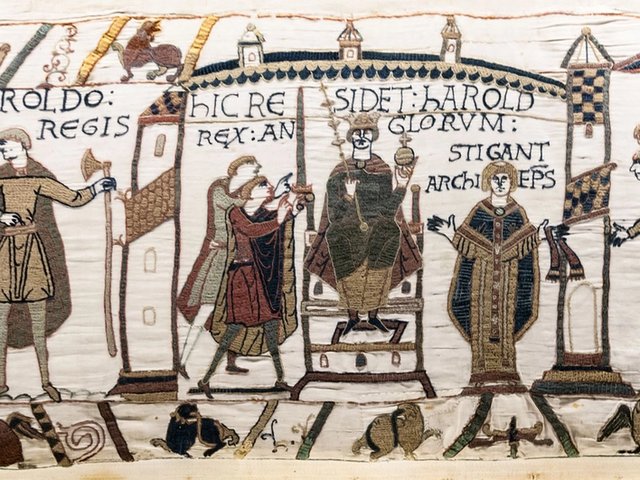 ROLDO:
REGIS
hIC RE SIDET: hAROLD
REX: AN GLORVM:
STIGANT
ARChI EPS̄